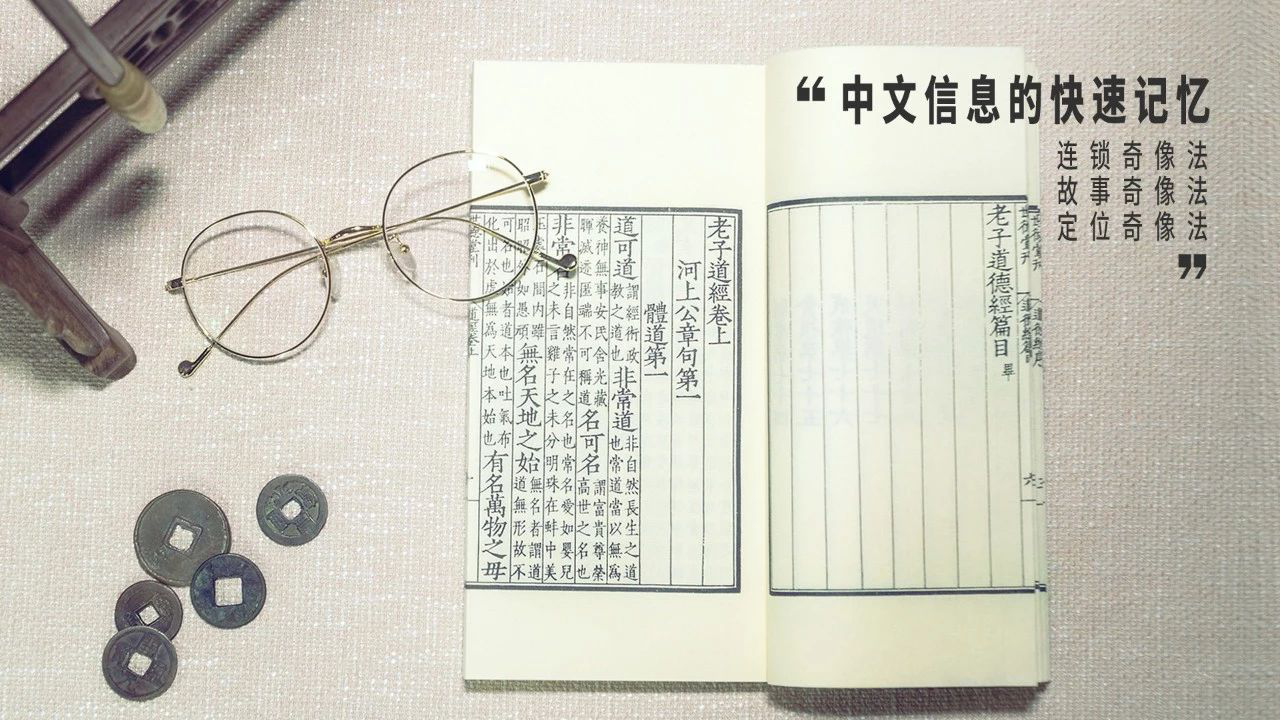 “中文信息的快速记忆
连锁奇像法
故事奇像法
定位奇像法”
老子道德經篇目 畢
老子道經卷上
河上公章句第一
體道第一
道可道謂經術政教之道也非常道非自然長生之道也常道當以無爲
養神無事安民含光藏暉滅迹匿端不可稱道名可名謂富貴尊榮高世之名也
非常名非自然常在之名也常名愛如嬰兒之未言雞子之未分明珠在蚌中美
處石間内雖昭昭外如愚頑無名天地之始無名者謂道道無形故不
可名也始者道本也吐氣布化出於虛無爲天地本始也有名萬物之母